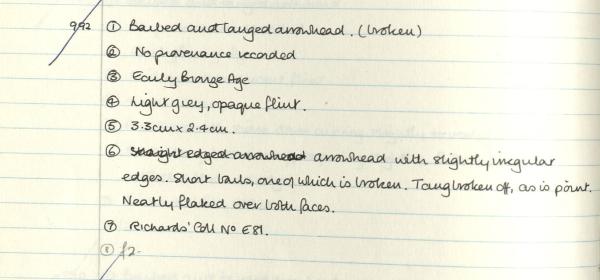 992 ① Barbed and tanged arrowhead. (broken)
② No provenance recorded
③ Early Bronze Age
④ Light grey, opaque flint.
⑤ 3.3cm x 2.4cm.
⑥ Straight edged arrowhead arrowhead with slightly irregular
edges. Short barbs, one of which is broken. Tang broken off, as is point.
Neatly flaked over both faces.
⑦ Richards' Coll No E81.
⑧ £2-